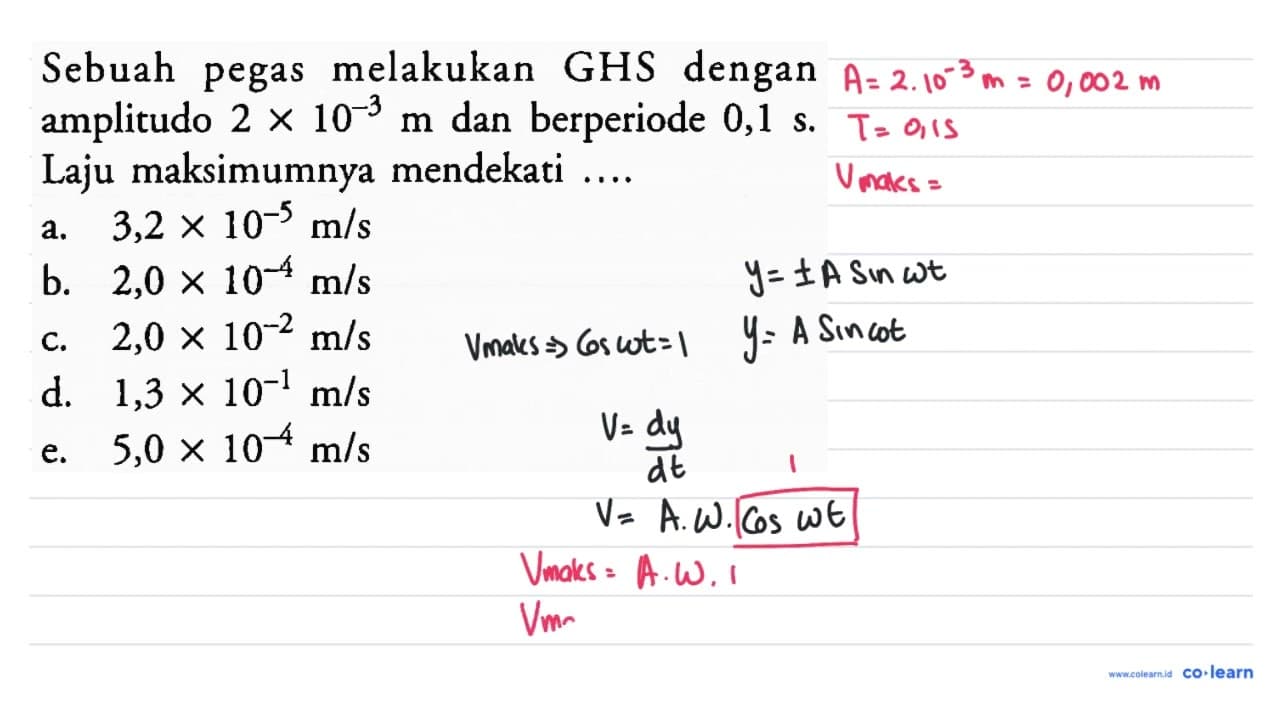 Sebuah pegas melakukan GHS dengan
amplitudo 2 × 10⁻³ m dan berperiode 0,1 s.
Laju maksimumnya mendekati ....
a. 3,2 × 10⁻⁵ m/s
b. 2,0 × 10⁻⁴ m/s
c. 2,0 × 10⁻² m/s
d. 1,3 × 10⁻¹ m/s
e. 5,0 × 10⁻⁴ m/s
A = 2.10⁻³ m = 0,002 m
T = 0,1s
Vmaks =
y = ± A Sin ωt
Vmaks ⇒ Cos ωt = 1
y = A Sin ωt
V = dy
dt
1
V = A.ω. Cos ωt
Vmaks = A.ω.1
Vm
www.colearn.id co·learn